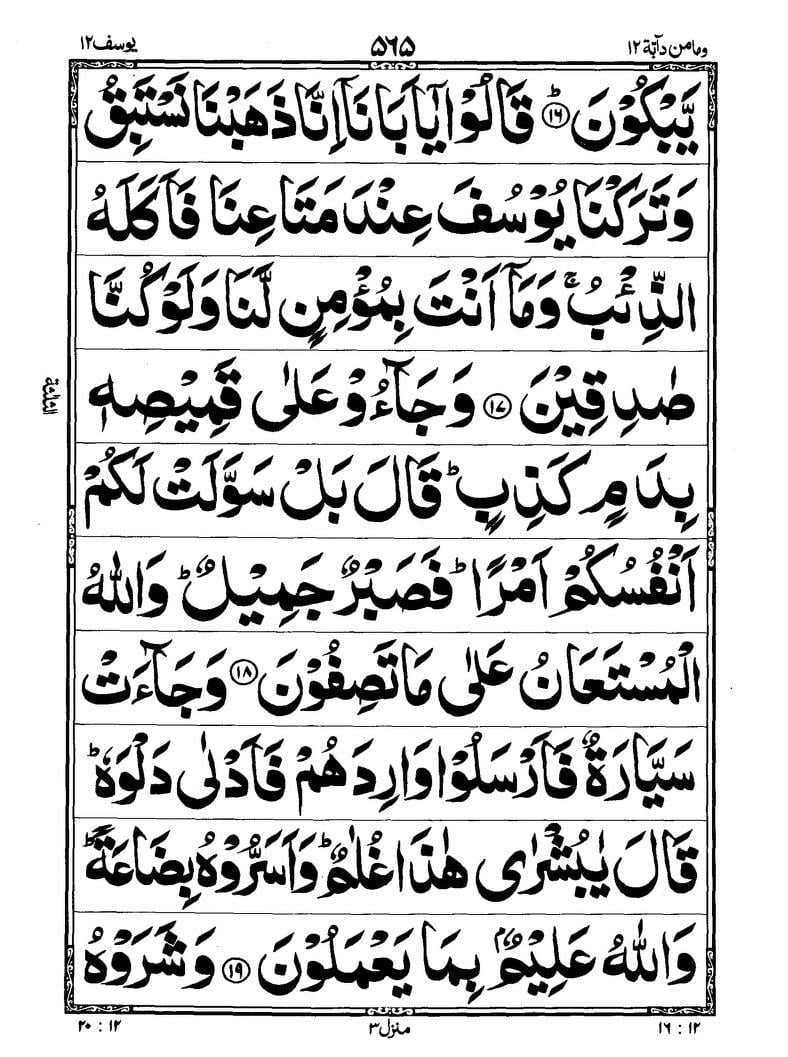 وما من دآبة ١٢ ۵۶۵ یوسف ١٢
يَّبْكُوْنَ ؕ ١٦ قَالُوْا يٰۤاَبَانَاۤ اِنَّا ذَهَبْنَا نَسْتَبِقُ
وَ تَرَكْنَا يُوْسُفَ عِنْدَ مَتَاعِنَا فَاَكَلَهُ
الذِّئْبُ ۚ وَ مَاۤ اَنْتَ بِمُؤْمِنٍ لَّنَا وَ لَوْ كُنَّا
صٰدِقِيْنَ ١٧ وَ جَآءُوْ عَلٰى قَمِيْصِهٖ
الثلثة
بِدَمٍ كَذِبٍ ؕ قَالَ بَلْ سَوَّلَتْ لَكُمْ
اَنْفُسُكُمْ اَمْرًا ؕ فَصَبْرٌ جَمِيْلٌ ؕ وَ اللّٰهُ
الْمُسْتَعَانُ عَلٰى مَا تَصِفُوْنَ ١٨ وَ جَآءَتْ
سَيَّارَةٌ فَاَرْسَلُوْا وَارِدَهُمْ فَاَدْلٰى دَلْوَهٗ ؕ
قَالَ يٰبُشْرٰى هٰذَا غُلٰمٌ ؕ وَ اَسَرُّوْهُ بِضَاعَةً ؕ
وَ اللّٰهُ عَلِيْمٌۢ بِمَا يَعْمَلُوْنَ ١٩ وَ شَرَوْهُ
١٦ : ١٢ منزل ٣ ٢٠ : ١٢